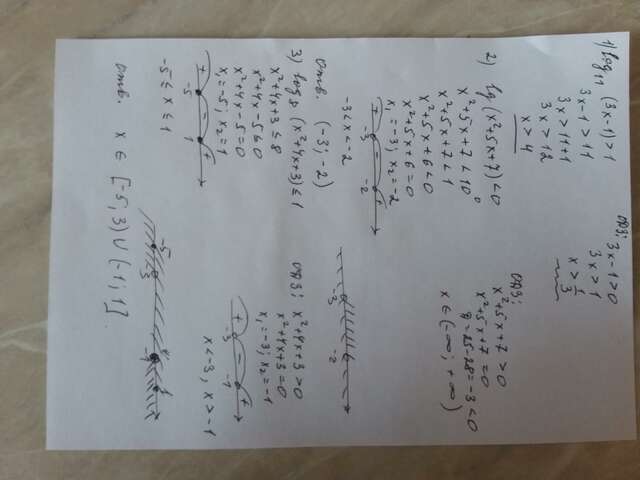 1) log₁₁ (3x-1) > 1
3x-1 > 11
3x > 11+1
3x > 12
x > 4
ОДЗ: 3x-1 > 0
3x > 1
x > 1/3
2) lg (x²+5x+7) < 0
x²+5x+7 < 10⁰
x²+5x+7 < 1
x²+5x+6 < 0
x²+5x+6 = 0
x₁ = -3; x₂ = -2
+ -3 - -2 +
-3 < x < -2
Отв. (-3; -2)
ОДЗ: x²+5x+7 > 0
x²+5x+7 = 0
Д = 25-28 = -3 < 0
x ∈ (-∞; +∞)
-3 -2
3) log₈ (x²+4x+3) ≤ 1
x²+4x+3 ≤ 8
x²+4x-5 ≤ 0
x²+4x-5 = 0
x₁ = -5; x₂ = 1
+ -5 - 1 +
-5 ≤ x ≤ 1
ОДЗ: x²+4x+3 > 0
x²+4x+3 = 0
x₁ = -3; x₂ = -1
+ -3 - -1 +
x < -3, x > -1
-5 -3 -1 1
Отв. x ∈ [-5; 3) ∪ (-1; 1]